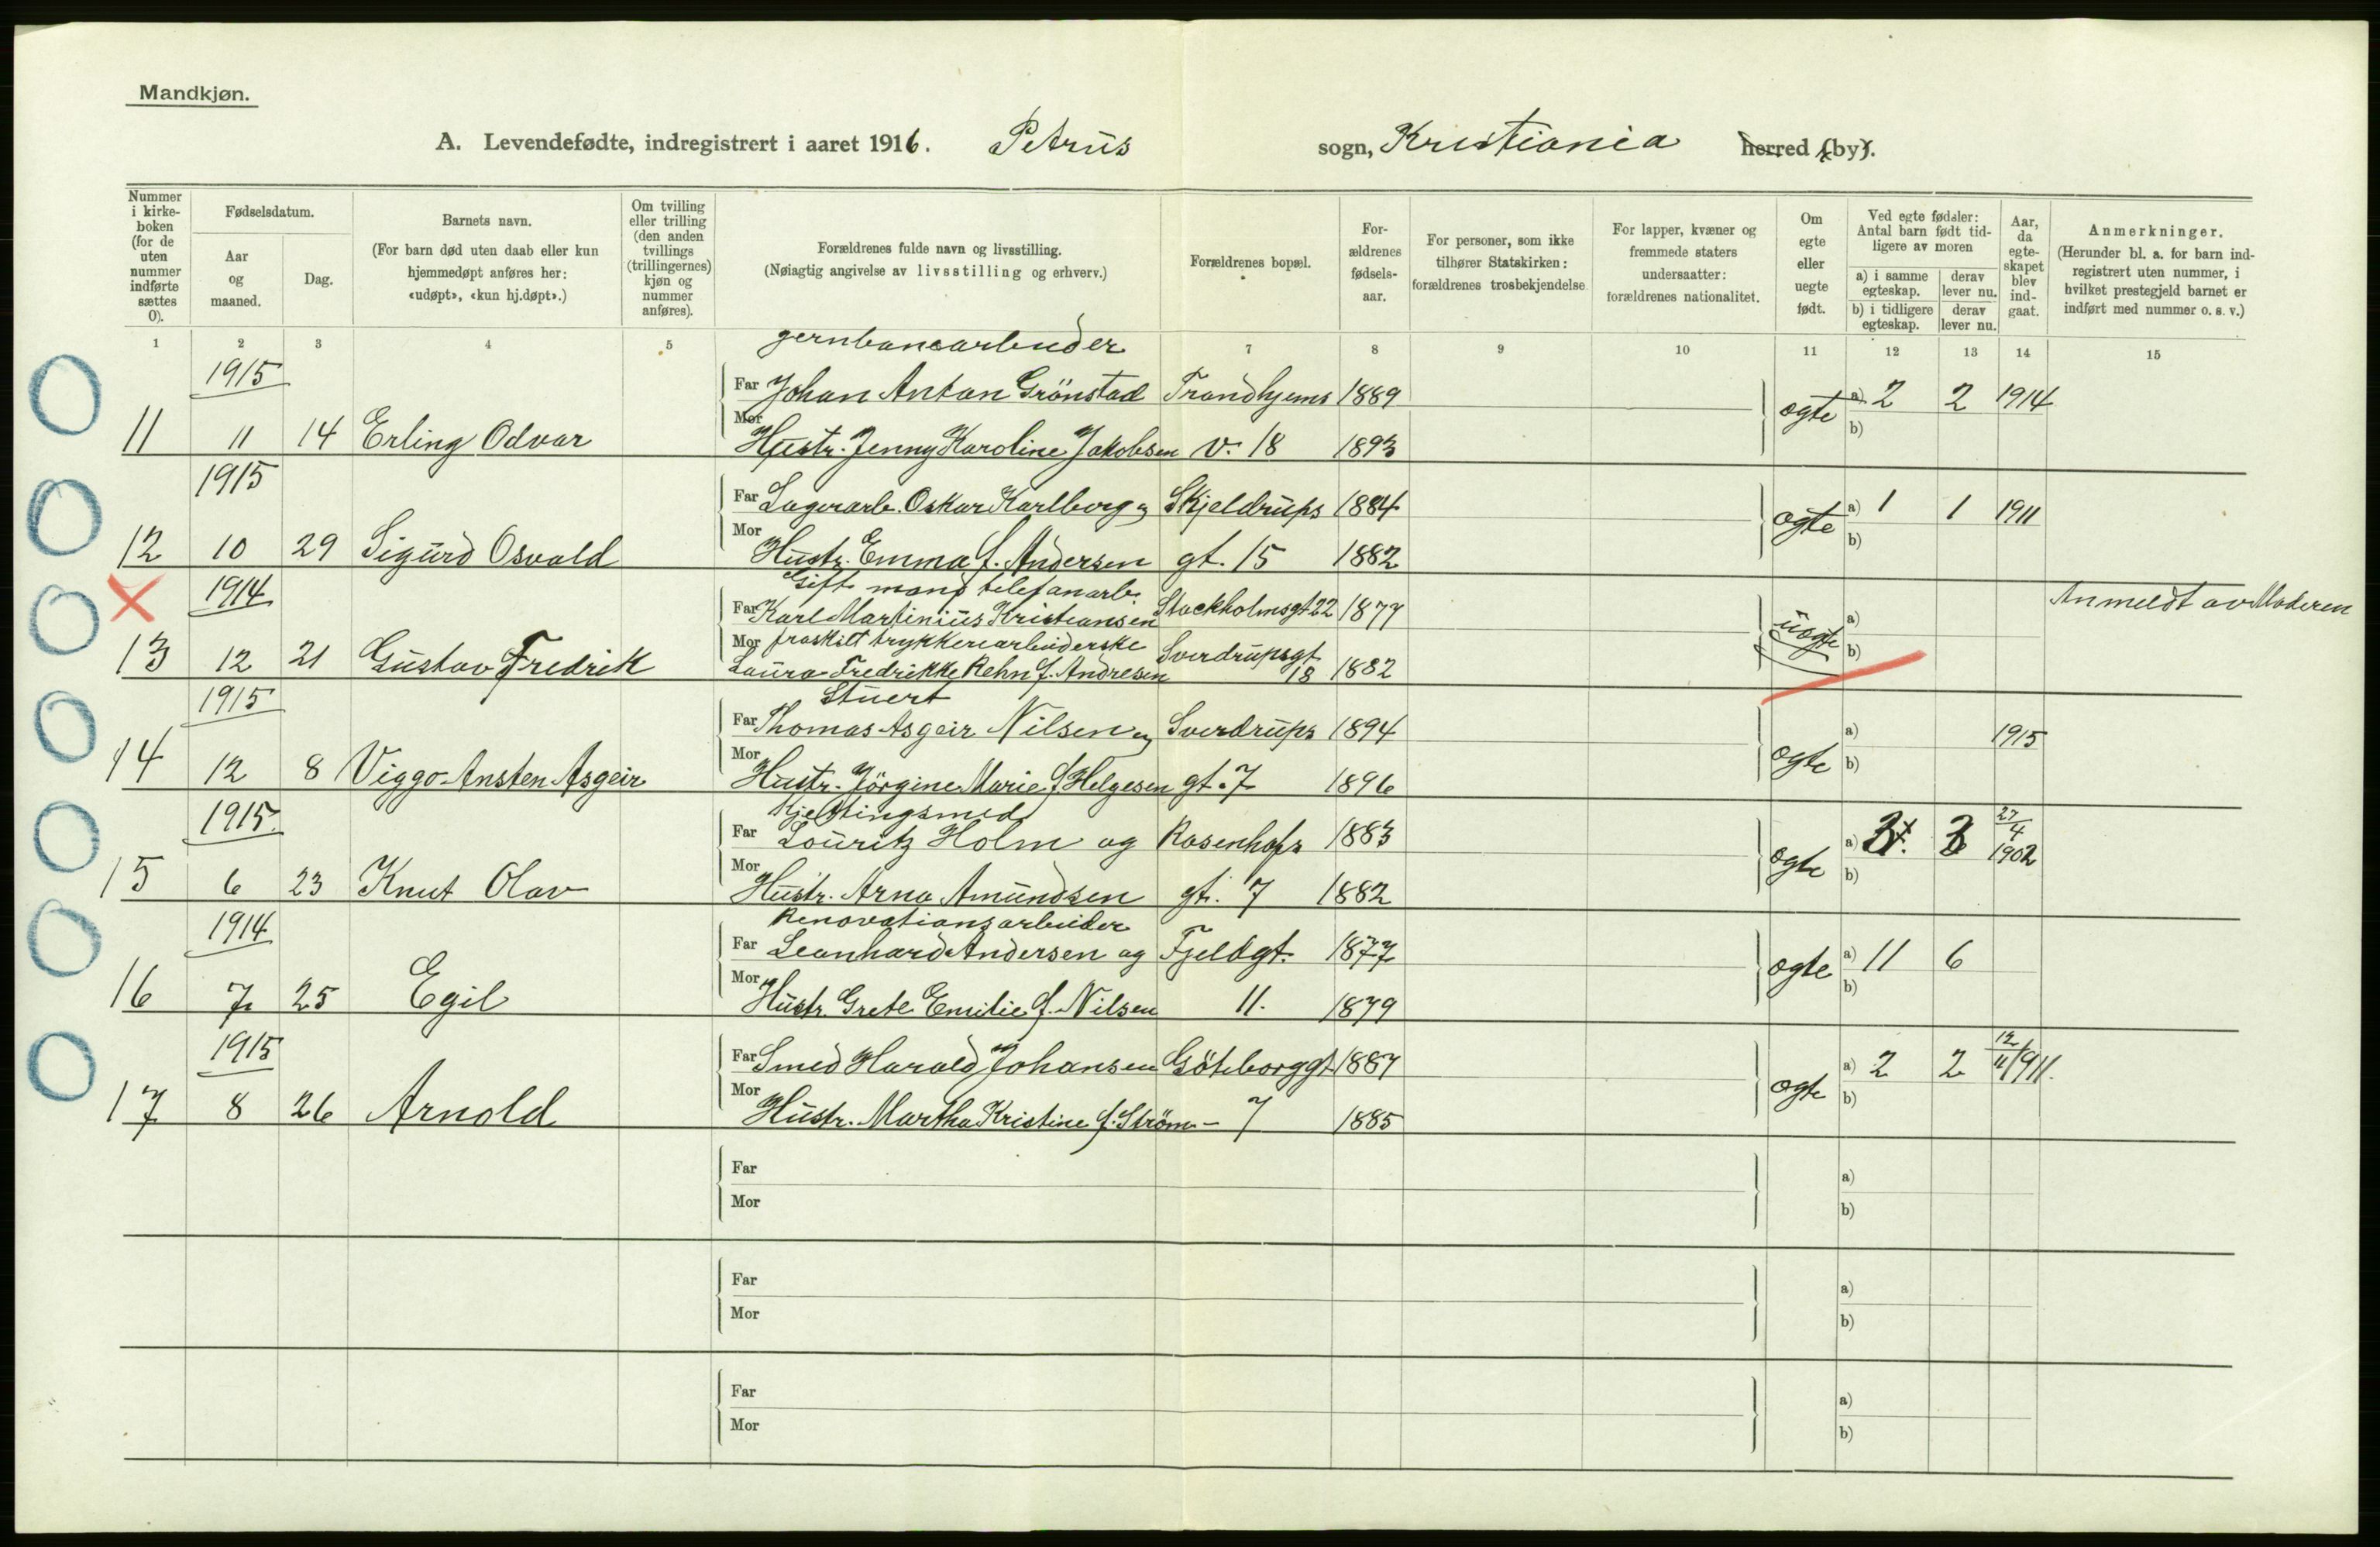 Mandkjøn.
A. Levendefødte, indregistrert i aaret 1916. Petrus sogn, Kristiania herred (by).
Nummer i kirkeboken (for de uten nummer indførte sættes 0).
Fødselsdatum.
Aar og maaned.
Dag.
Barnets navn.
(For barn død uten daab eller kun hjemmedøpt anføres her: «udøpt», «kun hj.døpt».)
Om tvilling eller trilling (den anden tvillings (trillingernes) kjøn og nummer anføres).
Forældrenes fulde navn og livsstilling.
(Nøiagtig angivelse av livsstilling og erhverv.)
Forældrenes bopæl.
Forældrenes fødselsaar.
For personer, som ikke tilhører Statskirken: forældrenes trosbekjendelse
For lapper, kvæner og fremmede staters undersaatter: forældrenes nationalitet.
Om egte eller uegte født.
Ved egte fødsler: Antal barn født tidligere av moren
a) i samme egteskap. derav lever nu.
b) i tidligere egteskap. derav lever nu.
Aar, da egteskapet blev indgaat.
Anmerkninger.
(Herunder bl. a. for barn indregistrert uten nummer, i hvilket prestegjeld barnet er indført med nummer o. s. v.)
1 2 3 4 5 7 8 9 10 11 12 13 14 15
jernbanearbeider
1915
Far Johan Anton Grönstad Trondhjems 1889 a) 2 2 1914
11 11 14 Erling Odvar Mor Hustr. Jenny Karoline Jakobsen v. 18 1893 egte b)
1915
Far Lagerarb. Oskar Karlberg og Skjeldrups 1884 a) 1 1 1911
12 10 29 Sigurd Osvald Mor Hustr. Emma f. Andersen gt. 15 1882 egte b)
Gift mand telefonarb.
1914 Far Karl Martinius Kristiansen Stockholmsgt 22 1879 a) Anmeldt av Moderen
fraskilt trykkeriarbeiderske
13 12 21 Gustav Fredrik Mor Laura Fredrikke Rehn f. Andresen Sverdrupsgt 18 1882 uegte b)
Stuert
1915
Far Thomas Asgeir Nilsen og Sverdrups 1894 a) 1915
14 12 8 Viggo Ansten Asgeir Mor Hustr. Jörgine Marie f. Helgesen gt. 7 1896 egte b)
Kjettingsmed
1915. Far Louritz Holm og Rosenhofs 1883 a) 3 3 27/4 1902
15 6 23 Knut Olav Mor Hustr. Arna Amundsen gt. 7 1882 egte b)
Renovationsarbeider
1914 Far Leonhard Andersen og Fjeldgt. 1877 a) 11 6
16 7 25 Egil Mor Hustr. Grete Emilie f. Nilsen 11. 1879 egte b)
1915 Far Smed Harald Johansen Göteborggt 1887 a) 2 2 12/11 1911.
17 8 26 Arnold Mor Hustr. Martha Kristine f. Ström - 7 1885 egte b)
Far a)
Mor b)
Far a)
Mor b)
Far a)
Mor b)